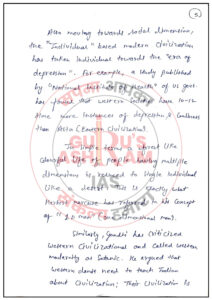 5
Also moving towards social dimension,
the "Individual" based modern Civilization
has taken individual towards the "era of
depression". For example, a study published
by "National Institute of Health" of US govt
has found that western society have 10-12
time more instances of depression & loneliness
than Asia (Eastern Civilization).
In simple terms a street like
colorful life of people having multiple
dimensions is reduced to single individual
like a desert. This is exactly what
Herbert Marcuse has referred in his concept
of "1D man" (One Dimensional man).
Similarly, Gandhi has criticized
western civilizational and called western
modernity as Satanic. He argued that
western don't need to teach Indian
about Civilization; Their civilization is